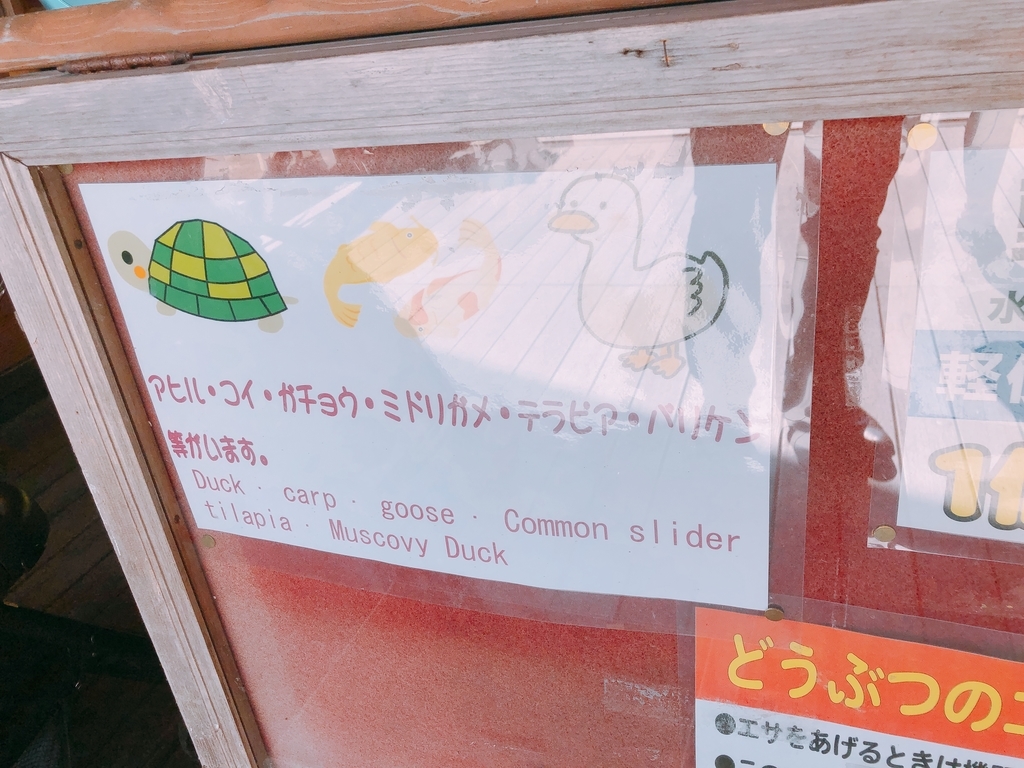 アヒル・コイ・ガチョウ・ミドリガメ・テラピア・バリケン
等がいます。
Duck · carp · goose · Common slider
tilapia · Muscovy Duck
水
軽
11
どうぶつの
●エサをあげるときは